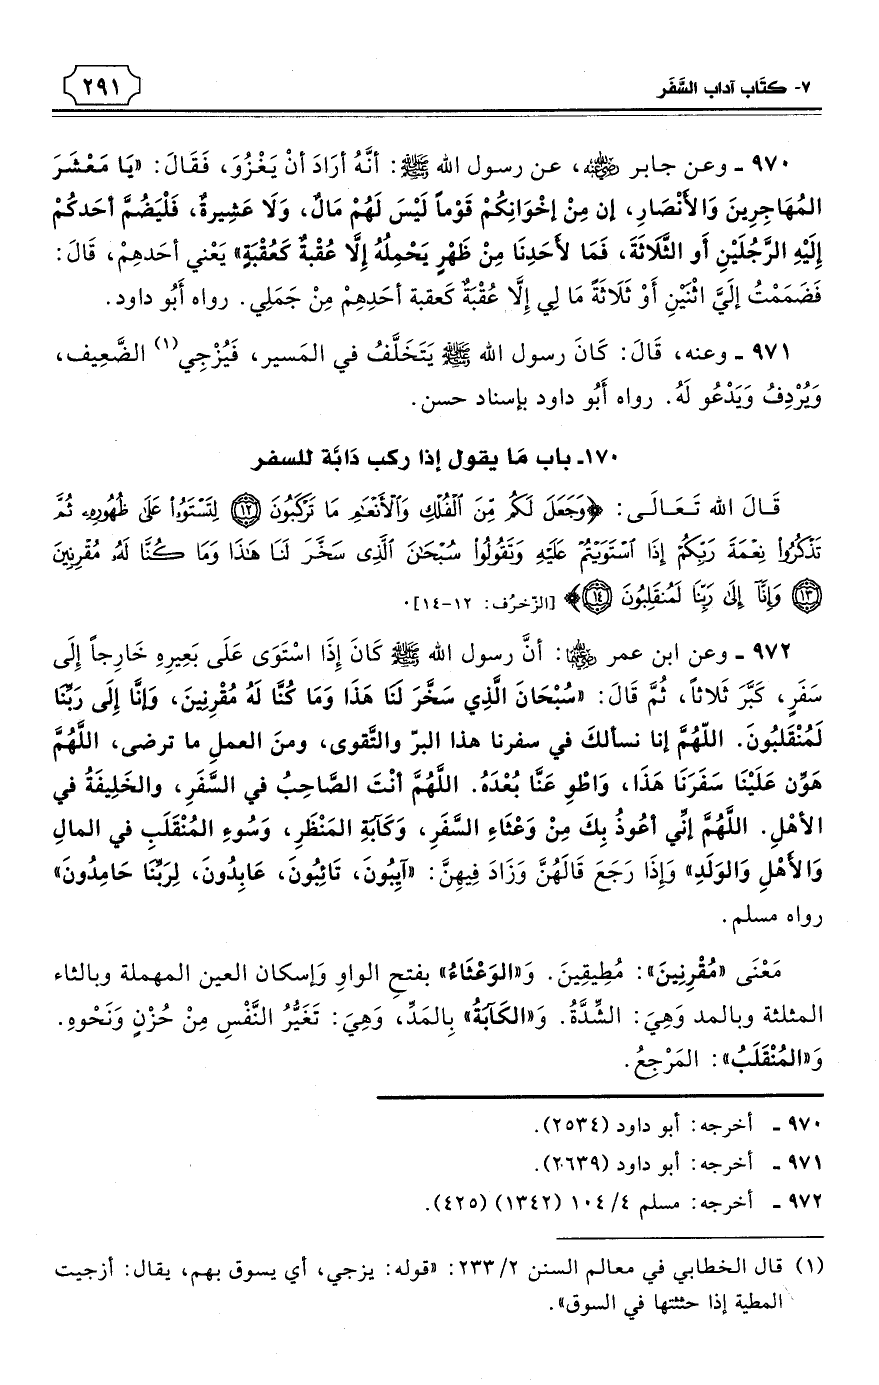 ٧- كتَاب آداب السَّفَر
٢٩١
٩٧٠ ـ وعن جابر رضي الله عنه، عن رسول الله ﷺ: أنَّهُ أرَادَ أنْ يَغْزُوَ، فَقَالَ: «يَا مَعْشَرَ
المُهَاجِرِينَ وَالأنْصَارِ، إن مِنْ إخْوَانِكُمْ قَوْماً لَيْسَ لَهُمْ مَالٌ، وَلَا عَشِيرةٌ، فَلْيَضُمَّ أحَدكُمْ
إلَيْهِ الرَّجُلَيْنِ أو الثَّلَاثَةَ، فَمَا لأحَدِنَا مِنْ ظَهْرٍ يَحْمِلُهُ إلَّا عُقْبةٌ كَعُقْبَةٍ» يَعْني أحَدهِمْ، قَالَ:
فَضَمَمْتُ إلَيَّ اثْنَيْنِ أوْ ثَلَاثَةً مَا لِي إلَّا عُقْبَةٌ كَعقبة أحَدِهِمْ مِنْ جَمَلِي. رواه أبُو داود.
٩٧١ ـ وعنه، قَالَ: كَانَ رسول الله ﷺ يَتَخَلَّفُ في المَسير، فَيُزْجِي(١) الضَّعِيف،
وَيُرْدِفُ وَيَدْعُو لَهُ. رواه أبُو داود بإسناد حسن.
١٧٠ـ باب مَا يقول إذا ركب دَابَّة للسفر
قَالَ الله تَعَالَى: ﴿وَجَعَلَ لَكُم مِّنَ ٱلْفُلْكِ وَٱلْأَنْعَٰمِ مَا تَرْكَبُونَ ۝١٢ لِتَسْتَوُۥا۟ عَلَىٰ ظُهُورِهِۦ ثُمَّ
تَذْكُرُوا۟ نِعْمَةَ رَبِّكُمْ إِذَا ٱسْتَوَيْتُمْ عَلَيْهِ وَتَقُولُوا۟ سُبْحَٰنَ ٱلَّذِى سَخَّرَ لَنَا هَٰذَا وَمَا كُنَّا لَهُۥ مُقْرِنِينَ
۝١٣ وَإِنَّآ إِلَىٰ رَبِّنَا لَمُنقَلِبُونَ ۝١٤﴾ [الزّخرُف: ١٢-١٤].
٩٧٢ ـ وعن ابن عمر رضي الله عنهما: أنَّ رسول الله ﷺ كَانَ إذَا اسْتَوَى عَلَى بَعِيرِهِ خَارِجاً إلَى
سَفَرٍ، كَبَّرَ ثَلاثاً، ثُمَّ قَالَ: «سُبْحَانَ الَّذِي سَخَّرَ لَنَا هَذَا وَمَا كُنَّا لَهُ مُقْرِنِينَ، وَإنَّا إلَى رَبِّنَا
لَمُنْقَلِبُونَ. اللّهُمَّ إنا نسألكَ في سفرنا هذا البرّ والتَّقوى، ومنَ العملِ ما ترضى، اللَّهُمَّ
هَوِّن عَلَيْنَا سَفَرَنَا هَذَا، وَاطْوِ عَنَّا بُعْدَهُ. اللَّهُمَّ أنْتَ الصَّاحِبُ في السَّفَرِ، والخَلِيفَةُ في
الأهْلِ. اللَّهُمَّ إنِّي أعُوذُ بِكَ مِنْ وَعْثَاءِ السَّفَرِ، وَكَآبَةِ المَنْظَرِ، وَسُوءِ المُنْقَلَبِ في المالِ
وَالأَهْلِ وَالوَلَدِ» وَإذَا رَجَعَ قَالَهُنَّ وَزَادَ فِيهِنَّ: «آيِبُونَ، تَائِبُونَ، عَابِدُونَ، لِرَبِّنَا حَامِدُونَ»
رواه مسلم.
مَعْنَى «مُقْرِنِينَ»: مُطِيقِينَ. وَ«الوَعْثَاءُ» بفتحِ الواوِ وَإسكان العين المهملة وبالثاء
المثلثة وبالمد وَهِيَ: الشِّدَّةُ. وَ«الكَآبَةُ» بِالمَدِّ، وَهِيَ: تَغَيُّرُ النَّفْسِ مِنْ حُزْنٍ وَنَحْوهِ.
وَ«المُنْقَلَبُ»: المَرْجِعُ.
٩٧٠ ـ أخرجه: أبو داود (٢٥٣٤).
٩٧١ ـ أخرجه: أبو داود (٢٦٣٩).
٩٧٢ ـ أخرجه: مسلم ٤/ ١٠٤ (١٣٤٢) (٤٢٥).
(١) قال الخطابي في معالم السنن ٢/ ٢٣٣: «قوله: يزجي، أي يسوق بهم، يقال: أزجيت
المطية إذا حثثتها في السوق».